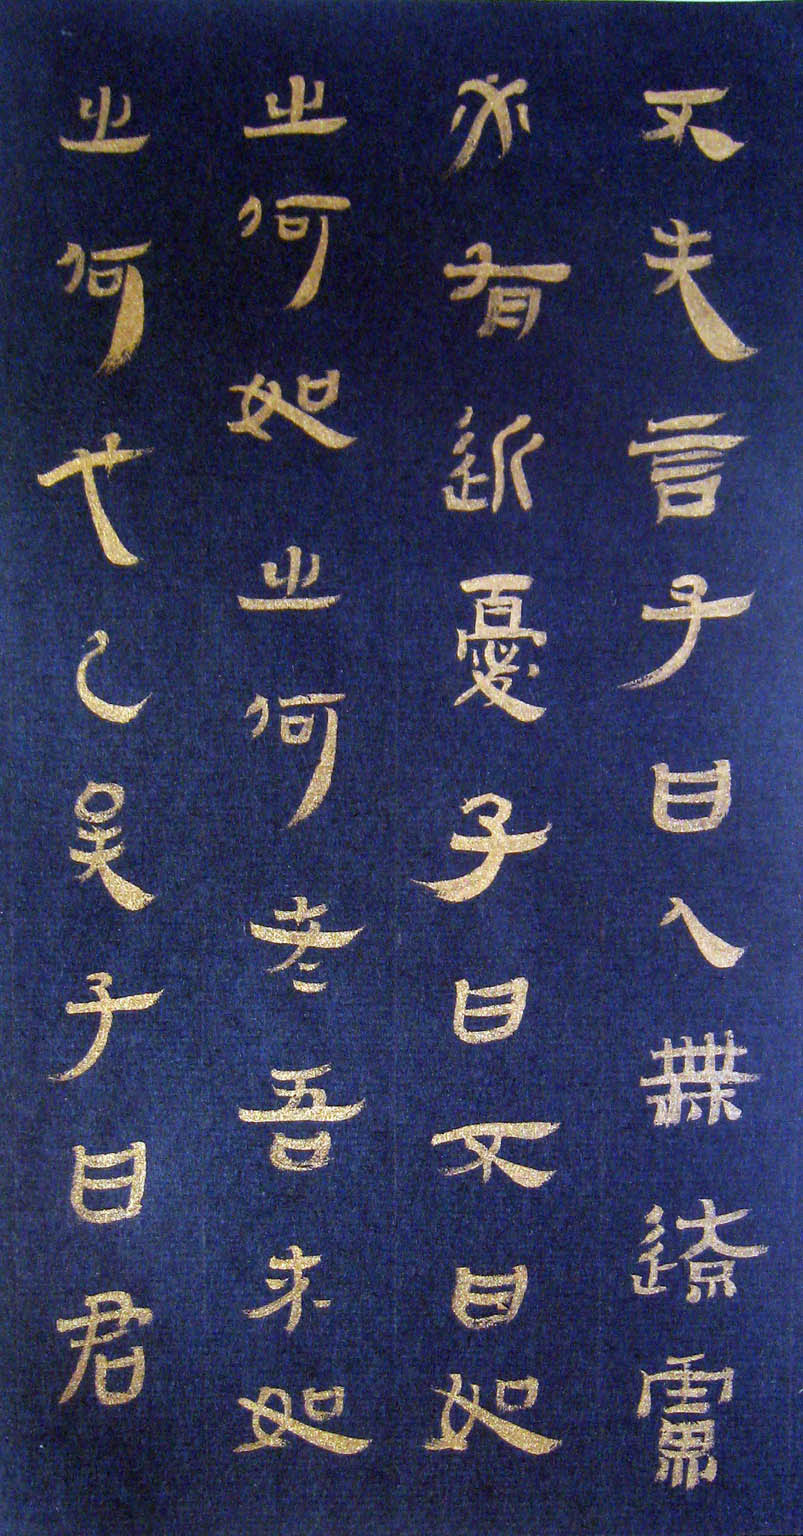 不失言子曰人無遠慮
必有近憂子曰不曰如
之何如之何者吾末如
之何也已矣子曰君